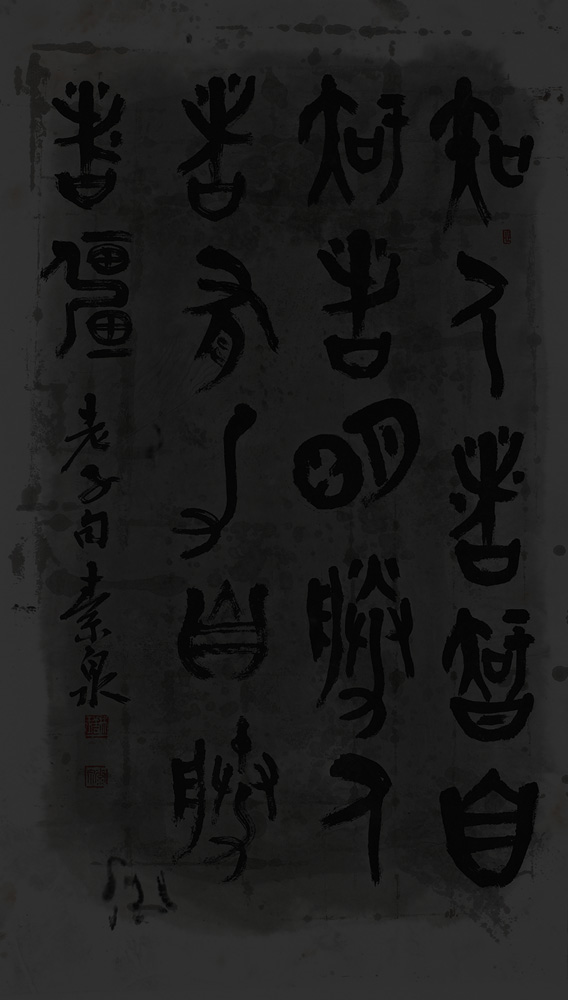 知人者智自
知者明勝人
者有力自勝
者彊
老子句素泉